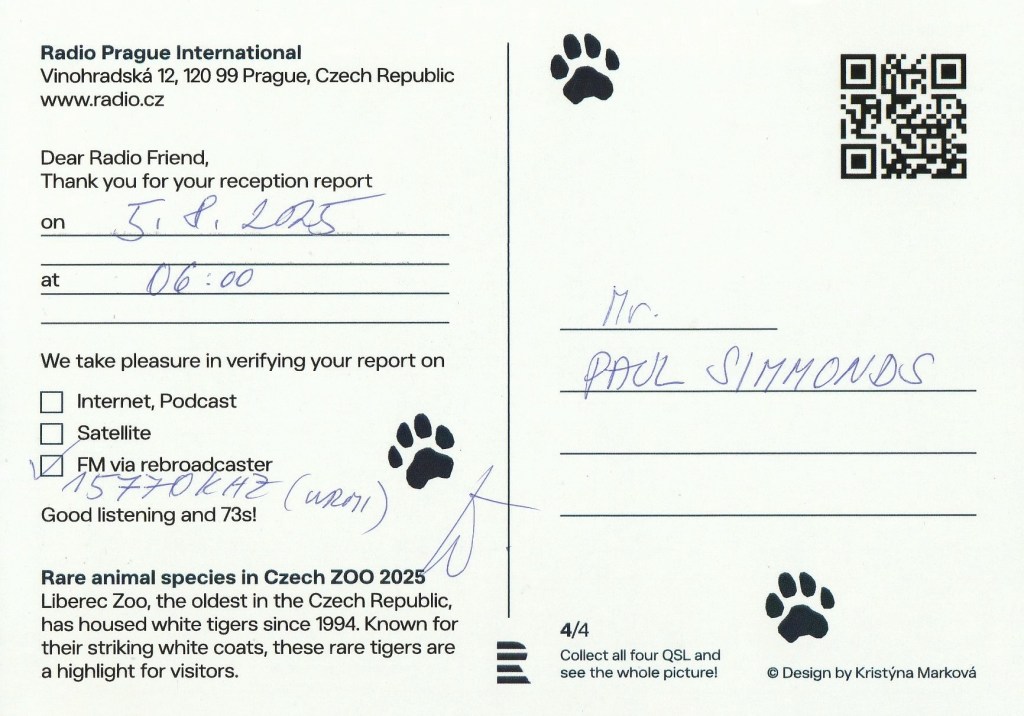 Radio Prague International
Vinohradská 12, 120 99 Prague, Czech Republic
www.radio.cz
Dear Radio Friend,
Thank you for your reception report
on 5. 8. 2025
at 06:00
We take pleasure in verifying your report on
Internet, Podcast
Satellite
FM via rebroadcaster
15770 KHZ (WRMI)
Good listening and 73s!
Rare animal species in Czech ZOO 2025
Liberec Zoo, the oldest in the Czech Republic,
has housed white tigers since 1994. Known for
their striking white coats, these rare tigers are
a highlight for visitors.
Mr.
PAUL SIMMONDS
4/4
Collect all four QSL and
see the whole picture!
© Design by Kristýna Marková